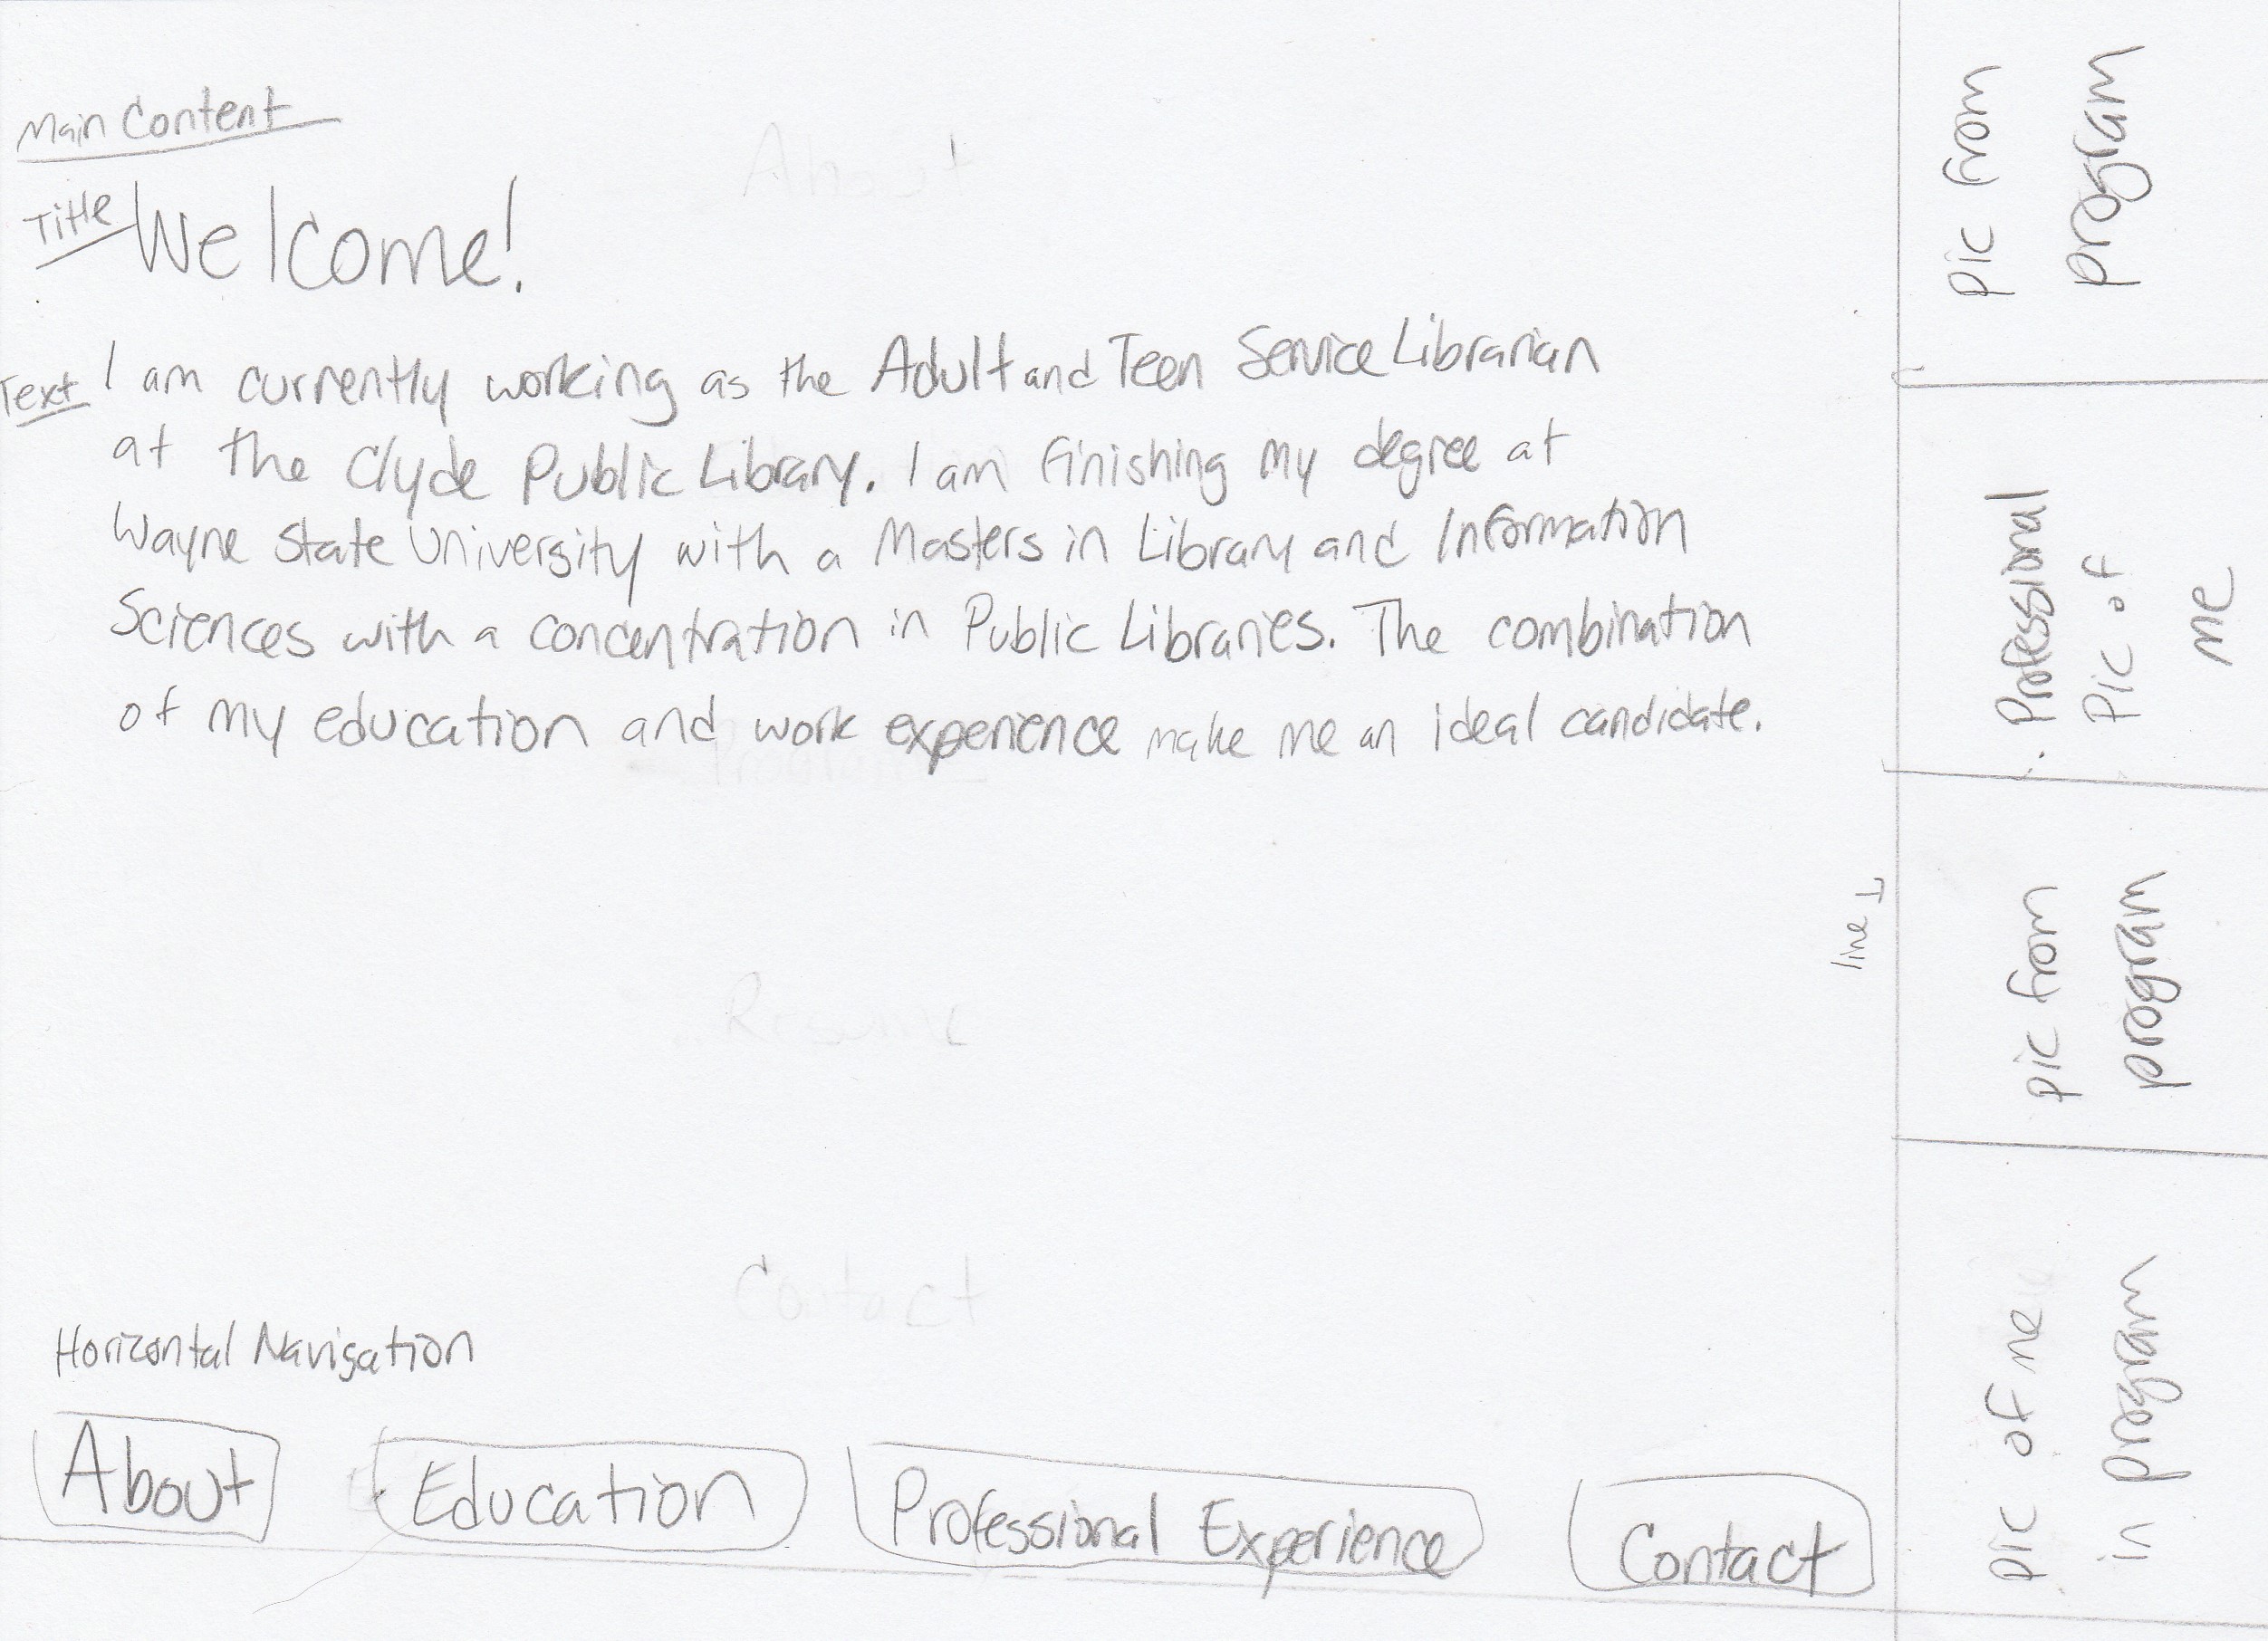 Main Content
Title Welcome!
Text I am currently working as the Adult and Teen Service Librarian
at the Clyde Public Library. I am finishing my degree at
Wayne State University with a Masters in Library and Information
Sciences with a concentration in Public Libraries. The combination
of my education and work experience make me an ideal candidate.
Horizontal Navigation
About
Education
Professional Experience
Contact
line
pic from
program
Professional
Pic of
me
pic from
program
pic of me
in program
About
Programs
Resume
Contact